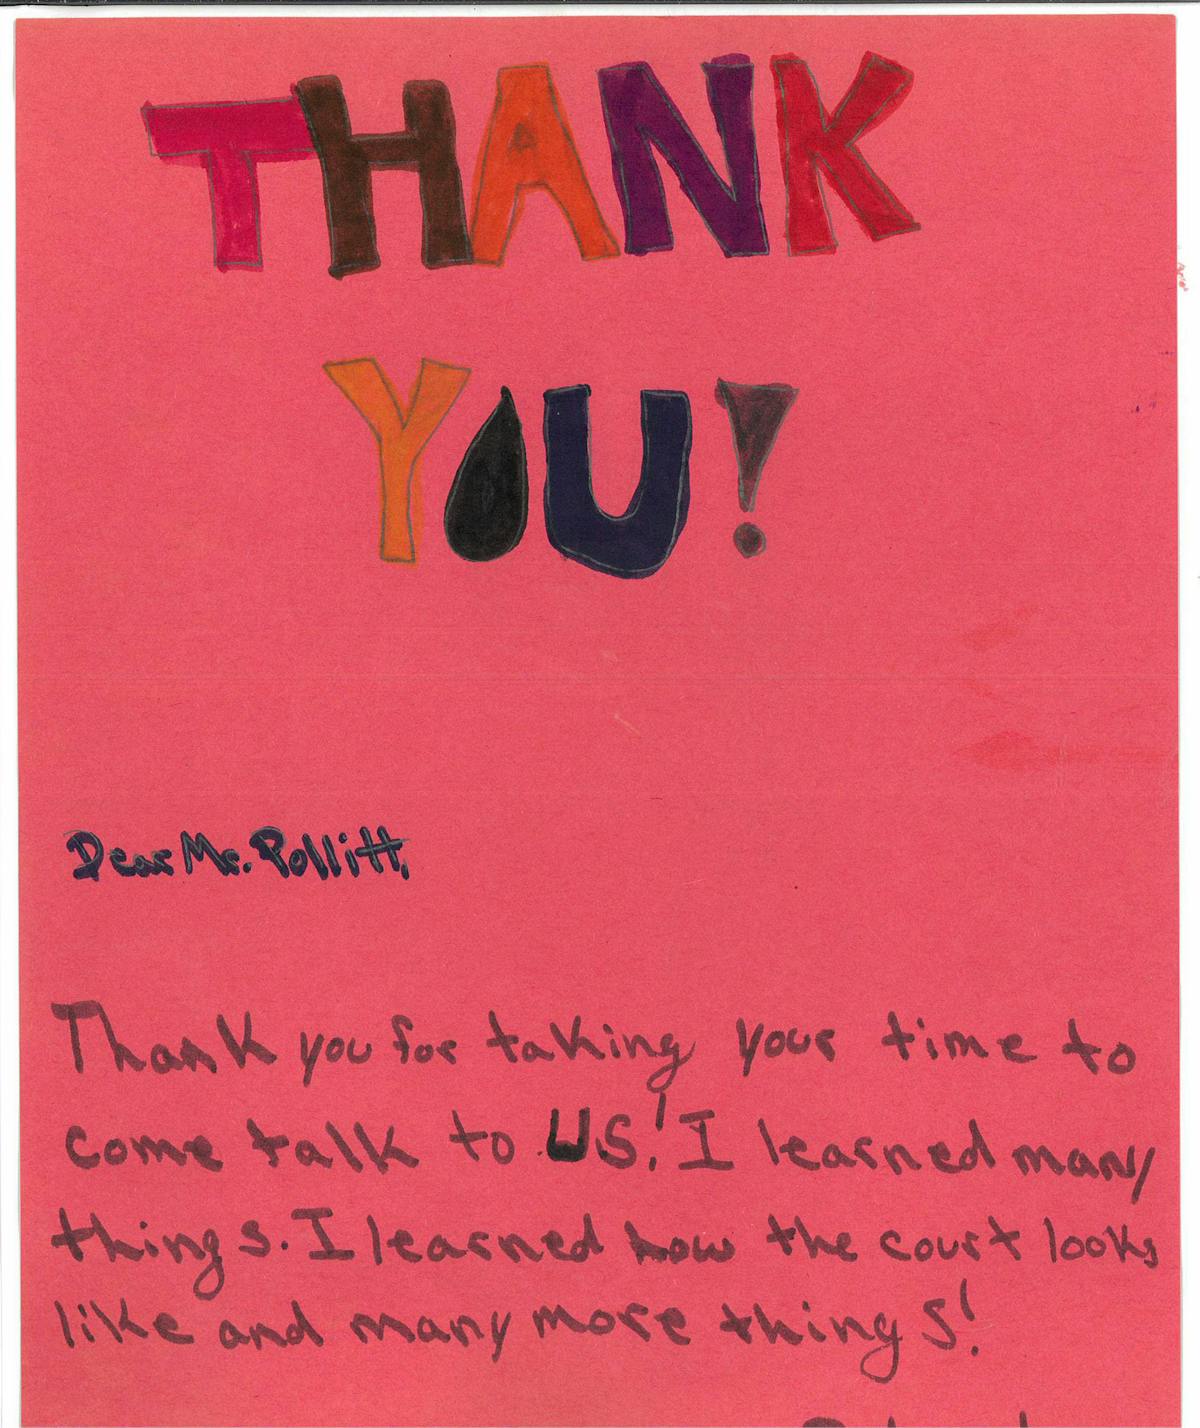 THANK
YOU!
Dear Mr. Pollitt,
Thank you for taking your time to
come talk to US! I learned many
things. I learned how the court looks
like and many more things!